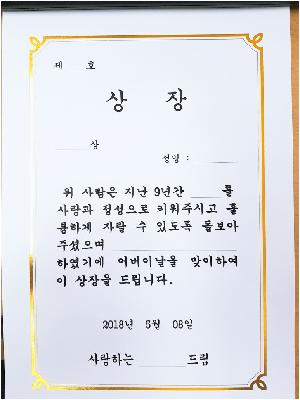 제 호
상 장
______상
정일 : ________
위 사람은 지난 9년간 _____를
사랑과 정성으로 키워주시고 훌
륭하게 자랄 수 있도록 돌보아
주셨으며 ______________
하였기에 어버이날을 맞이하여
이 상장을 드립니다.
2018년 5월 08일
사랑하는 ________드림